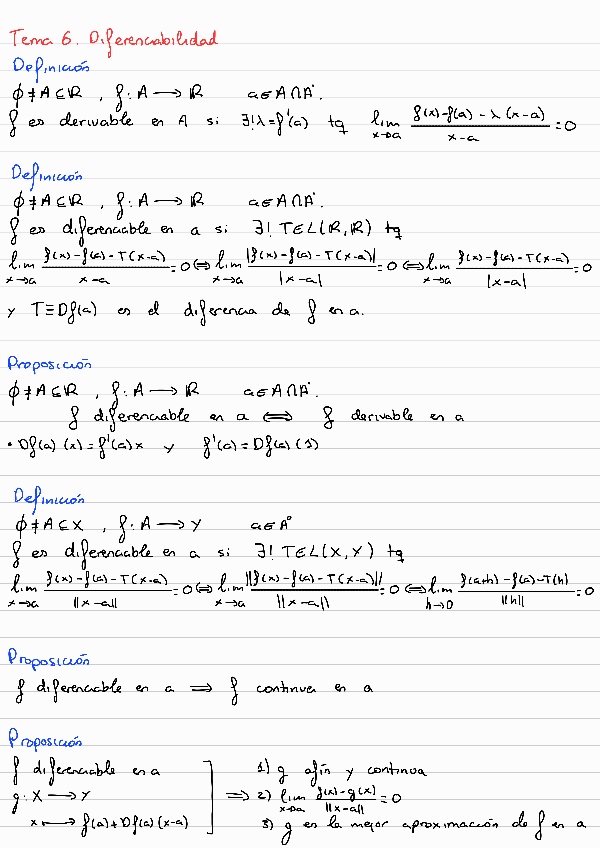 Tema 6. Diferenciabilidad
Definición
∅ ≠ A ⊆ ℝ , f: A ⟶ ℝ a ∈ A ∩ A'.
f es derivable en A si ∃! λ = f'(a) tq lim x→a (f(x) - f(a) - λ(x-a)) / (x-a) = 0
Definición
∅ ≠ A ⊆ ℝ , f: A ⟶ ℝ a ∈ A ∩ A'.
f es diferenciable en a si ∃! T ∈ L(ℝ, ℝ) tq
lim x→a (f(x) - f(a) - T(x-a)) / (x-a) = 0 ⟺ lim x→a |f(x) - f(a) - T(x-a)| / |x-a| = 0 ⟺ lim x→a (f(x) - f(a) - T(x-a)) / |x-a| = 0
y T ≡ Df(a) es el diferencia de f en a.
Proposición
∅ ≠ A ⊆ ℝ , f: A ⟶ ℝ a ∈ A ∩ A'.
f diferenciable en a ⟺ f derivable en a
• Df(a)(x) = f'(a)x y f'(a) = Df(a)(1)
Definición
∅ ≠ A ⊆ X , f: A ⟶ Y a ∈ A°
f es diferenciable en a si ∃! T ∈ L(X, Y) tq
lim x→a (f(x) - f(a) - T(x-a)) / ||x-a|| = 0 ⟺ lim x→a ||f(x) - f(a) - T(x-a)|| / ||x-a|| = 0 ⟺ lim h→0 (f(a+h) - f(a) - T(h)) / ||h|| = 0
Proposición
f diferenciable en a ⟹ f continua en a
Proposición
f diferenciable en a 1) g afín y continua
g: X ⟶ Y ⟹ 2) lim x→a (f(x) - g(x)) / ||x-a|| = 0
x ⟼ f(a) + Df(a)(x-a) 3) g es la mejor aproximación de f en a